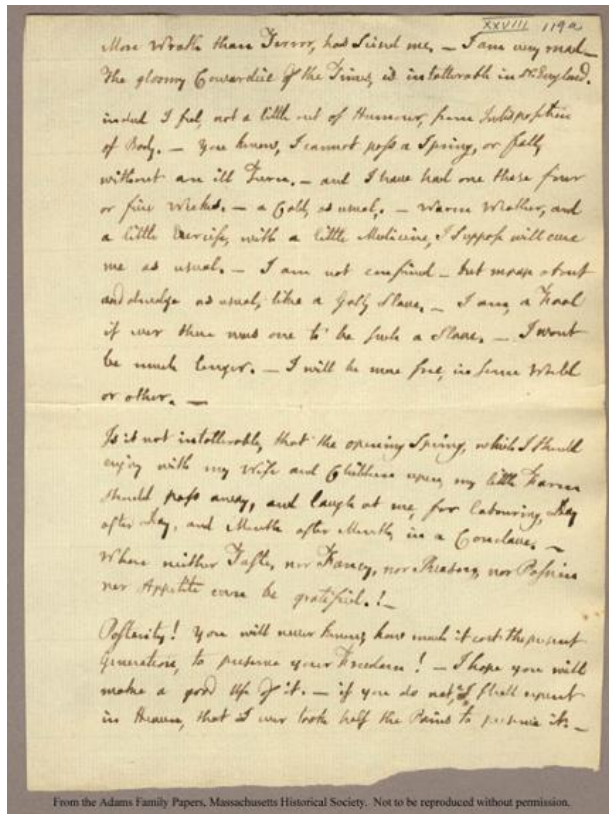 XXVIII 119a
More Wrath than Terror, has seized me. — I am very mad—
The gloomy Cowardice of the Times, is intollerable in N. England.
indeed I feel, not a little out of Humour, from Indisposition
of Body. — You know, I cannot pass a Spring, or fall,
without an ill Turn. — and I have had one these four
or five Weeks. — a Cold, as usual. — Warm Weather, and
a little Exercise, with a little Medicine, I suppose will cure
me as usual. — I am not confined — but moap about
and drudge as usual, like a Gally Slave. — I am a Fool
if ever there was one to be such a Slave. — I wont
be much longer. — I will be more free, in some World
or other. —
Is it not intollerable, that the opening Spring, which I should
enjoy with my Wife and Children upon my little Farm
should pass away, and laugh at me, for labouring, Day
after Day, and Month after Month, in a Conclave. —
Where neither Taste, nor Fancy, nor Reason, nor Passion
nor Appetite can be gratified.! —
Posterity! You will never know, how much it cost the present
Generation, to preserve your Freedom! — I hope you will
make a good Use of it. — if you do not, I shall repent
in Heaven, that I ever took half the Pains to preserve it. —
From the Adams Family Papers, Massachusetts Historical Society. Not to be reproduced without permission.